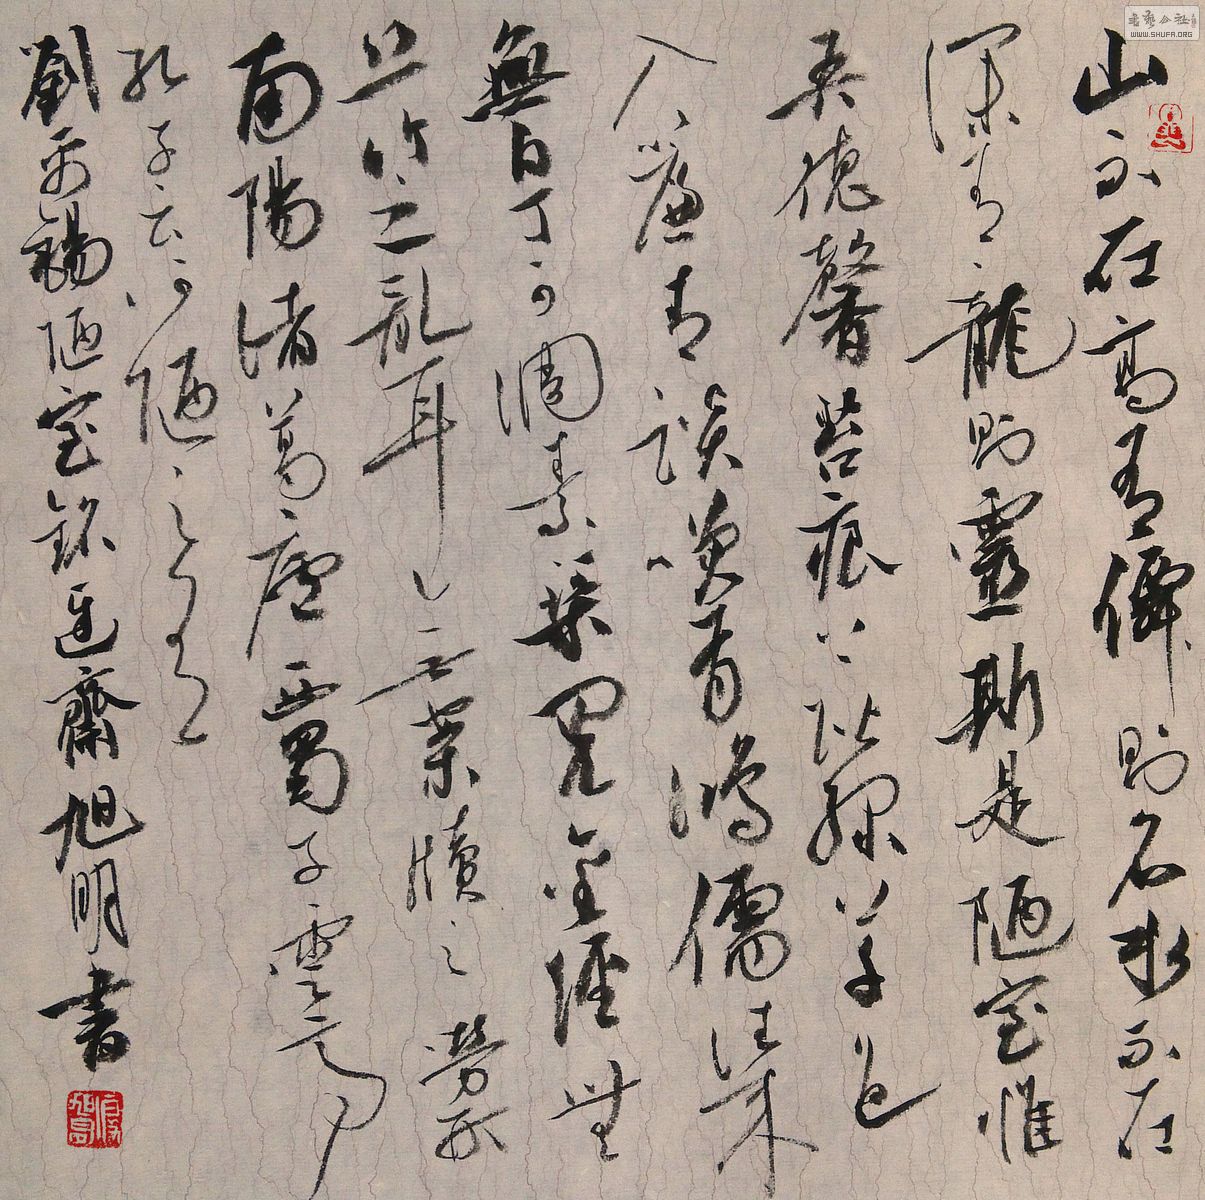 山不在高有僊則名水不在
深有龍則靈斯是陋室惟
吾德馨苔痕上階綠草色
入簾青談笑有鴻儒往來
無白丁可調素琴閱金經無
絲竹之亂耳無案牘之勞形
南陽諸葛廬西蜀子雲亭
孔子云何陋之有
劉禹錫陋室銘齋旭明書
WWW.SHUFA.ORG